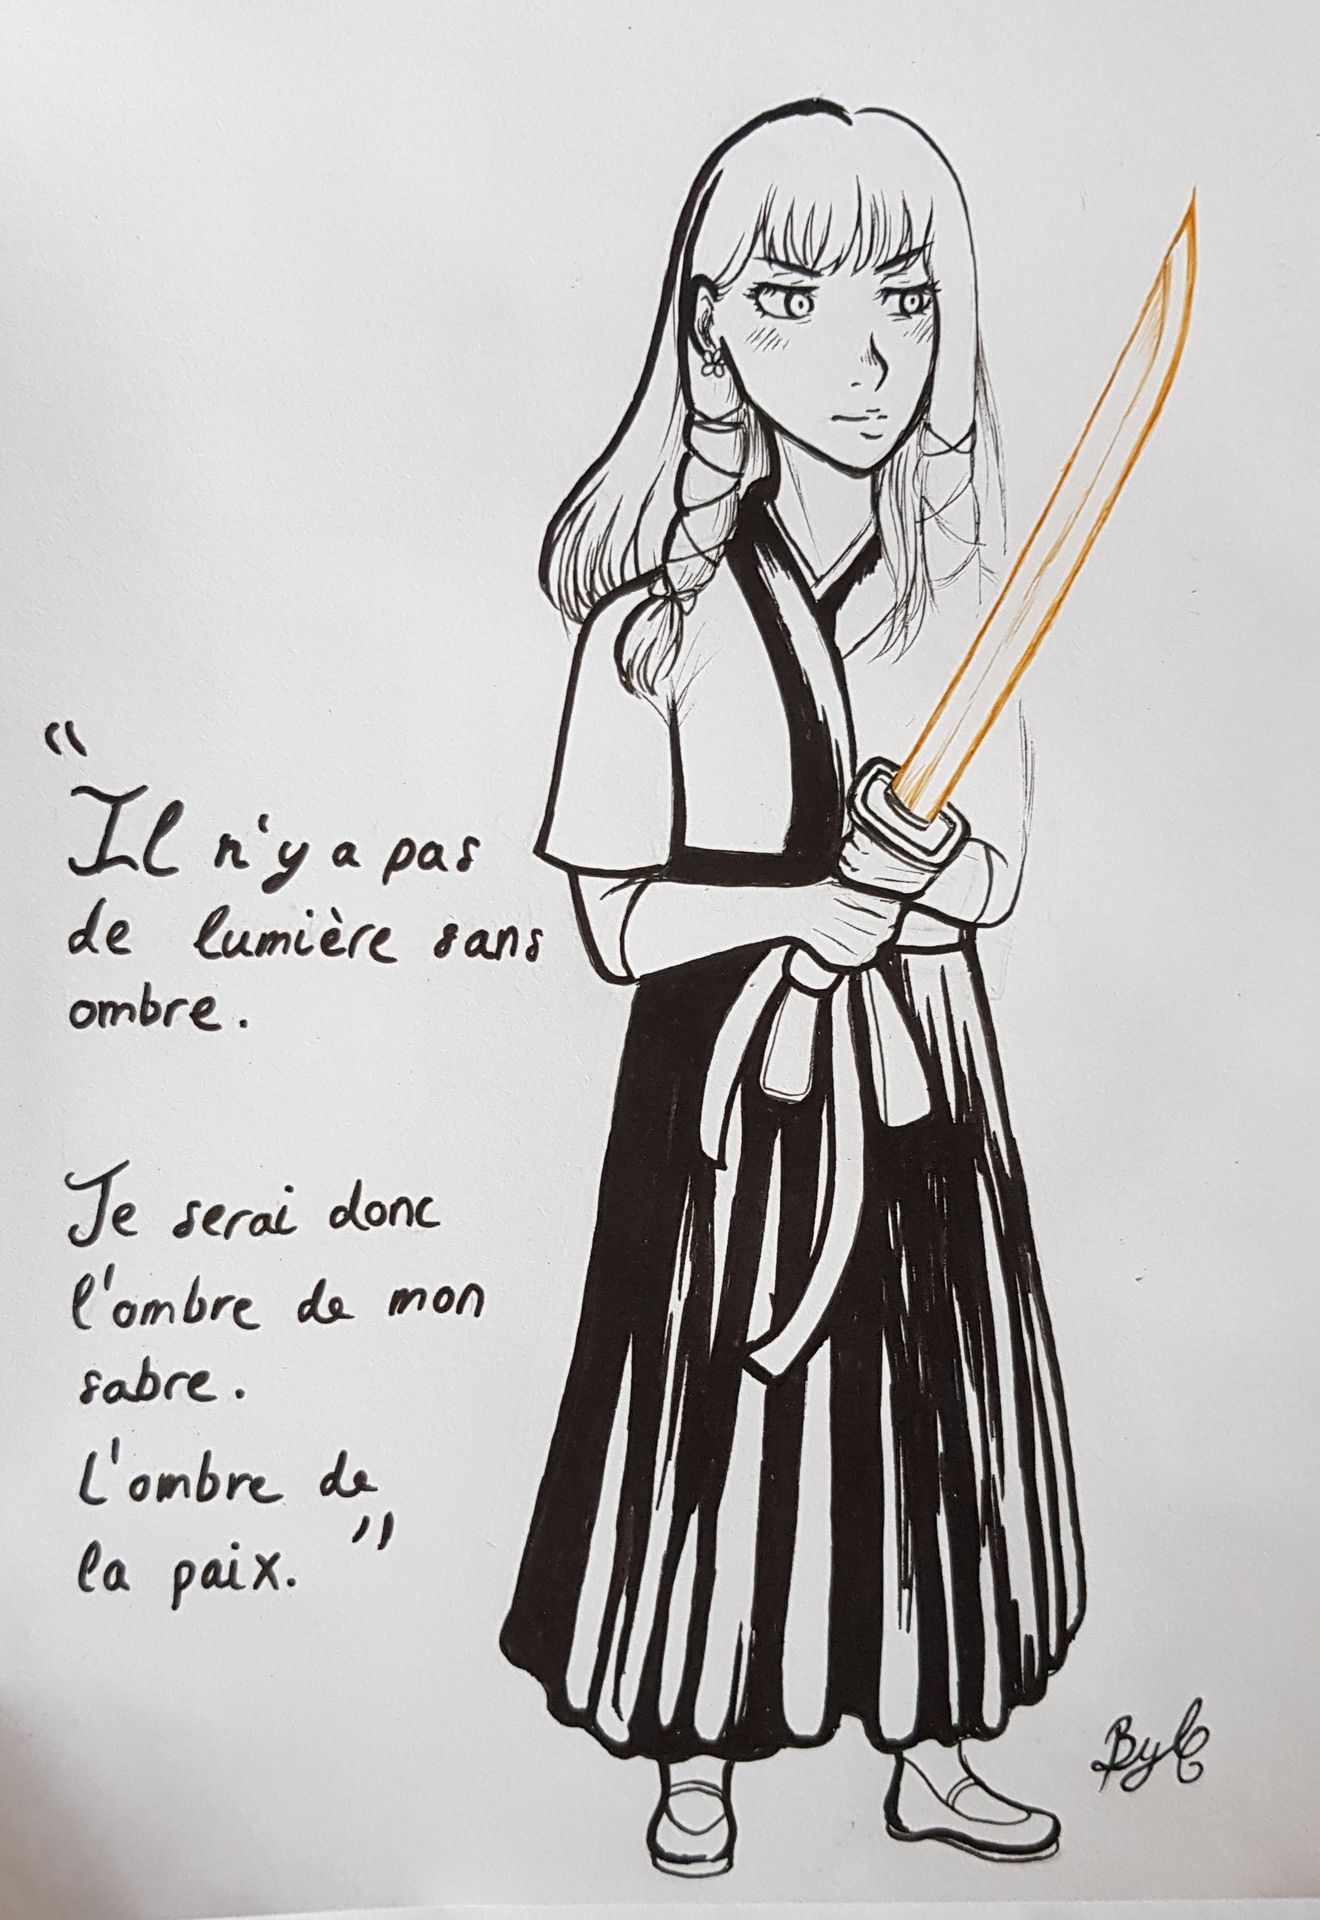 "
Il n'y a pas
de lumière sans
ombre.
Je serai donc
l'ombre de mon
sabre.
L'ombre de
la paix. "
By C